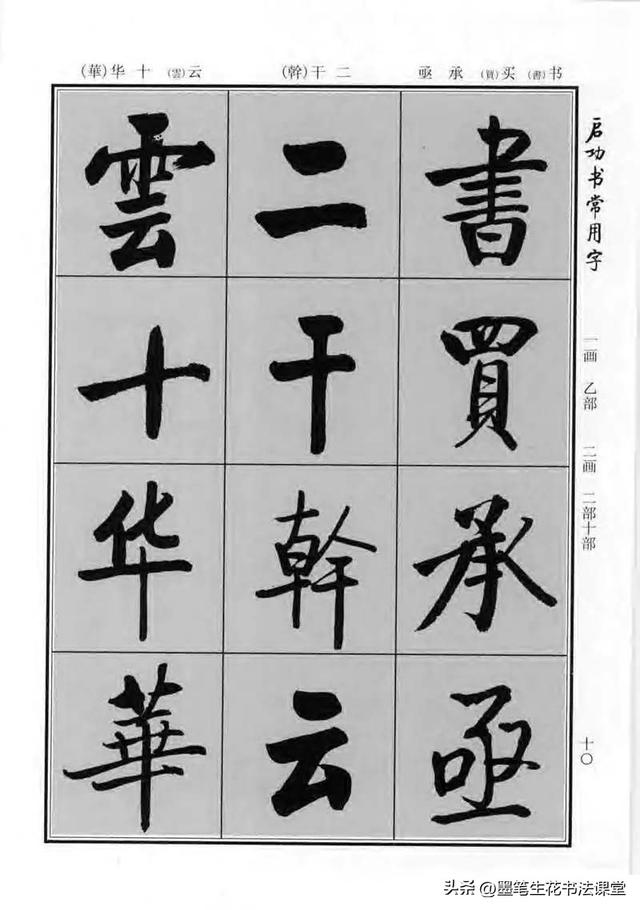 启功书常用字
一画 乙部 二画 二部十部
一〇
书(書)买(買)承亟
二干(幹)
云(雲)十华(華)
書買承亟
二干幹云
雲十华華
头条 @墨笔生花书法课堂